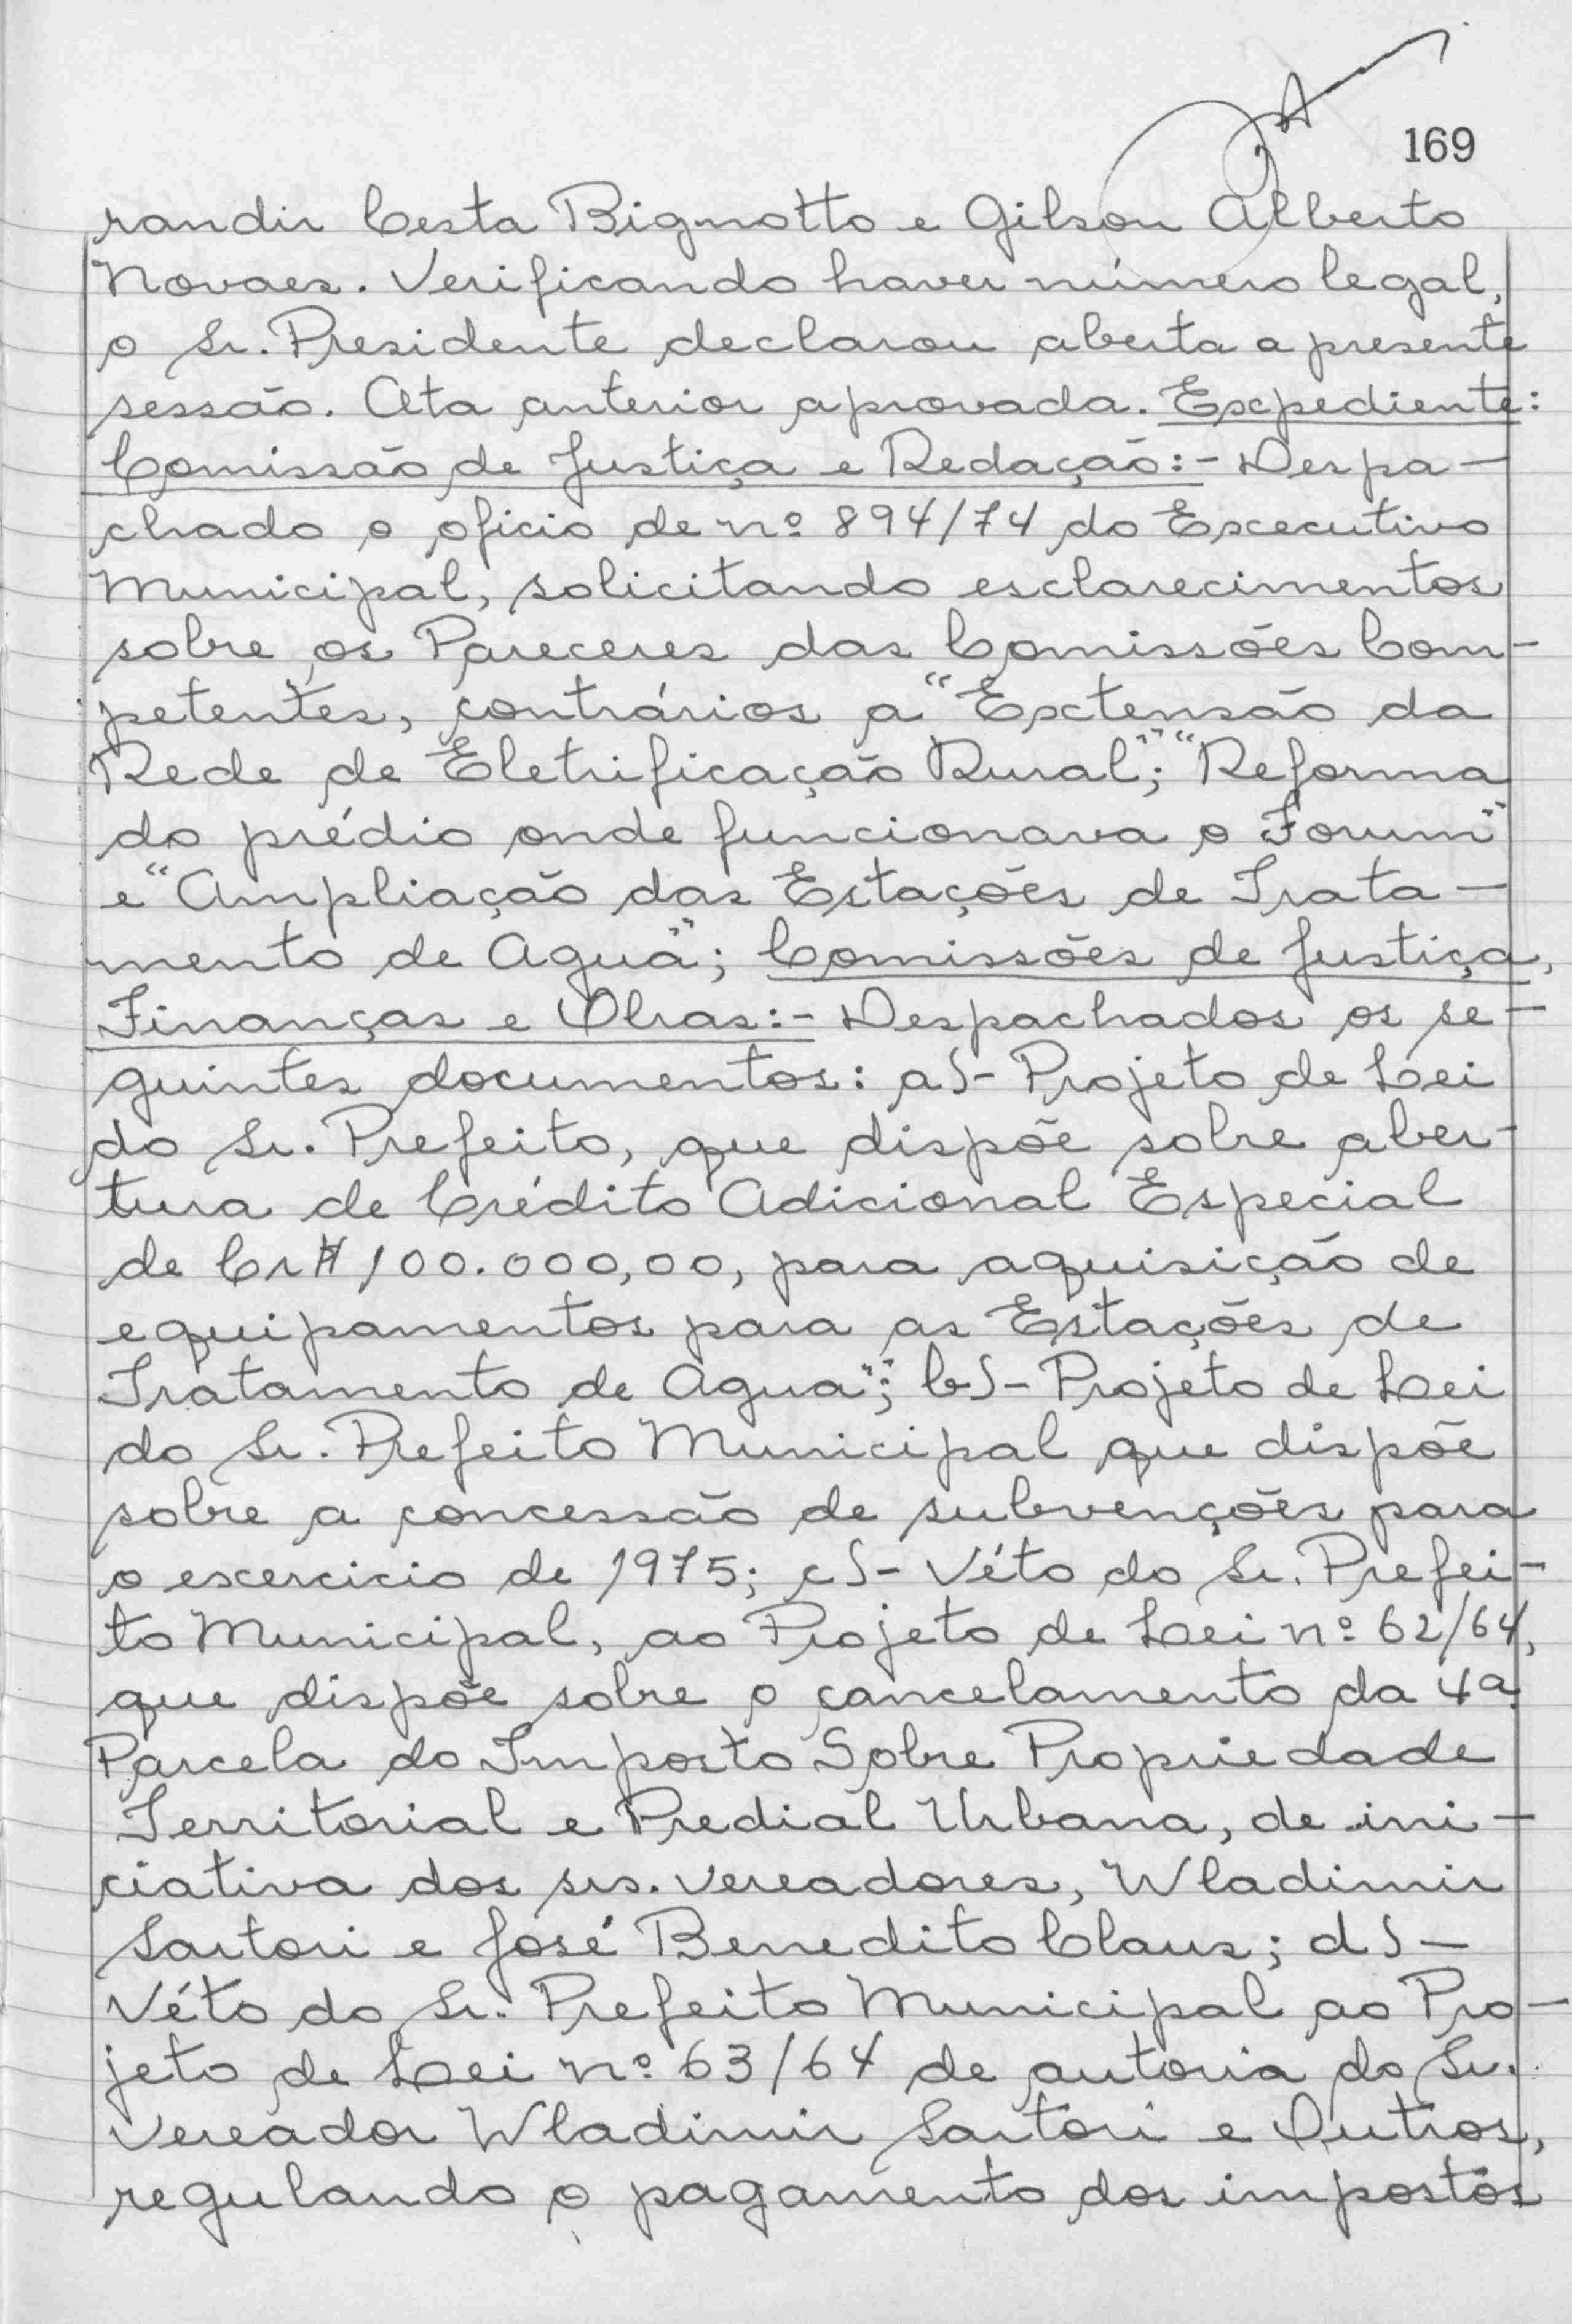 169
randir Cesta Bignotto e Gilson Alberto
Novaes. Verificando haver número legal,
o Sr. Presidente declarou aberta a presente
sessão. Ata anterior aprovada. Expediente:
Comissão de Justiça e Redação:- Despa-
chado o oficio de nº 894/74 do Executivo
Municipal, solicitando esclarecimentos
sobre os Pareceres das Comissões Com-
petentes, contrários a "Extensão da
Rede de Eletrificação Rural"; "Reforma
do prédio onde funcionava o Forum"
e "Ampliação das Estações de Trata-
mento de Agua"; Comissões de Justiça,
Finanças e Obras:- Despachados os se-
guintes documentos: a)- Projeto de Lei
do Sr. Prefeito, que dispõe sobre aber-
tura de Crédito Adicional Especial
de Cr$ 100.000,00, para aquisição de
equipamentos para as Estações de
Tratamento de Agua"; b)- Projeto de Lei
do Sr. Prefeito Municipal que dispõe
sobre a concessão de subvenções para
o exercicio de 1975; c)- Véto do Sr. Prefei-
to Municipal, ao Projeto de Lei nº 62/64,
que dispõe sobre o cancelamento da 4ª
Parcela do Imposto Sobre Propriedade
Territorial e Predial Urbana, de ini-
ciativa dos srs. vereadores, Wladimir
Sartori e José Benedito Claus; d)-
Véto do Sr. Prefeito Municipal ao Pro-
jeto de Lei nº 63/64 de autoria do Sr.
Vereador Wladimir Sartori e Outros,
regulando o pagamento dos impostos